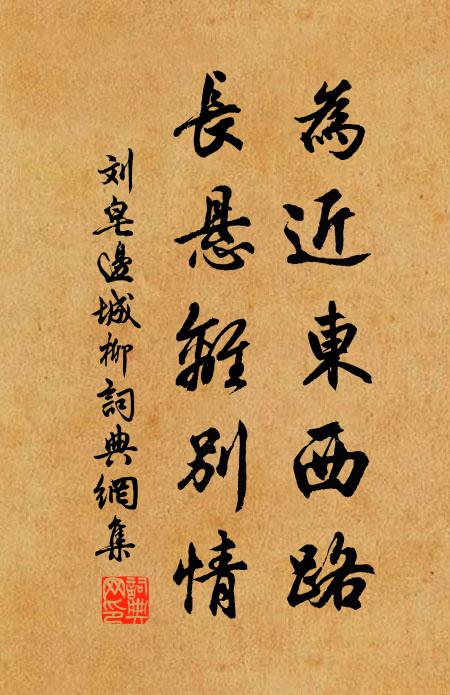 為近東西路
長悬離别情
刘皂邊城柳詞典網集
詞典网印